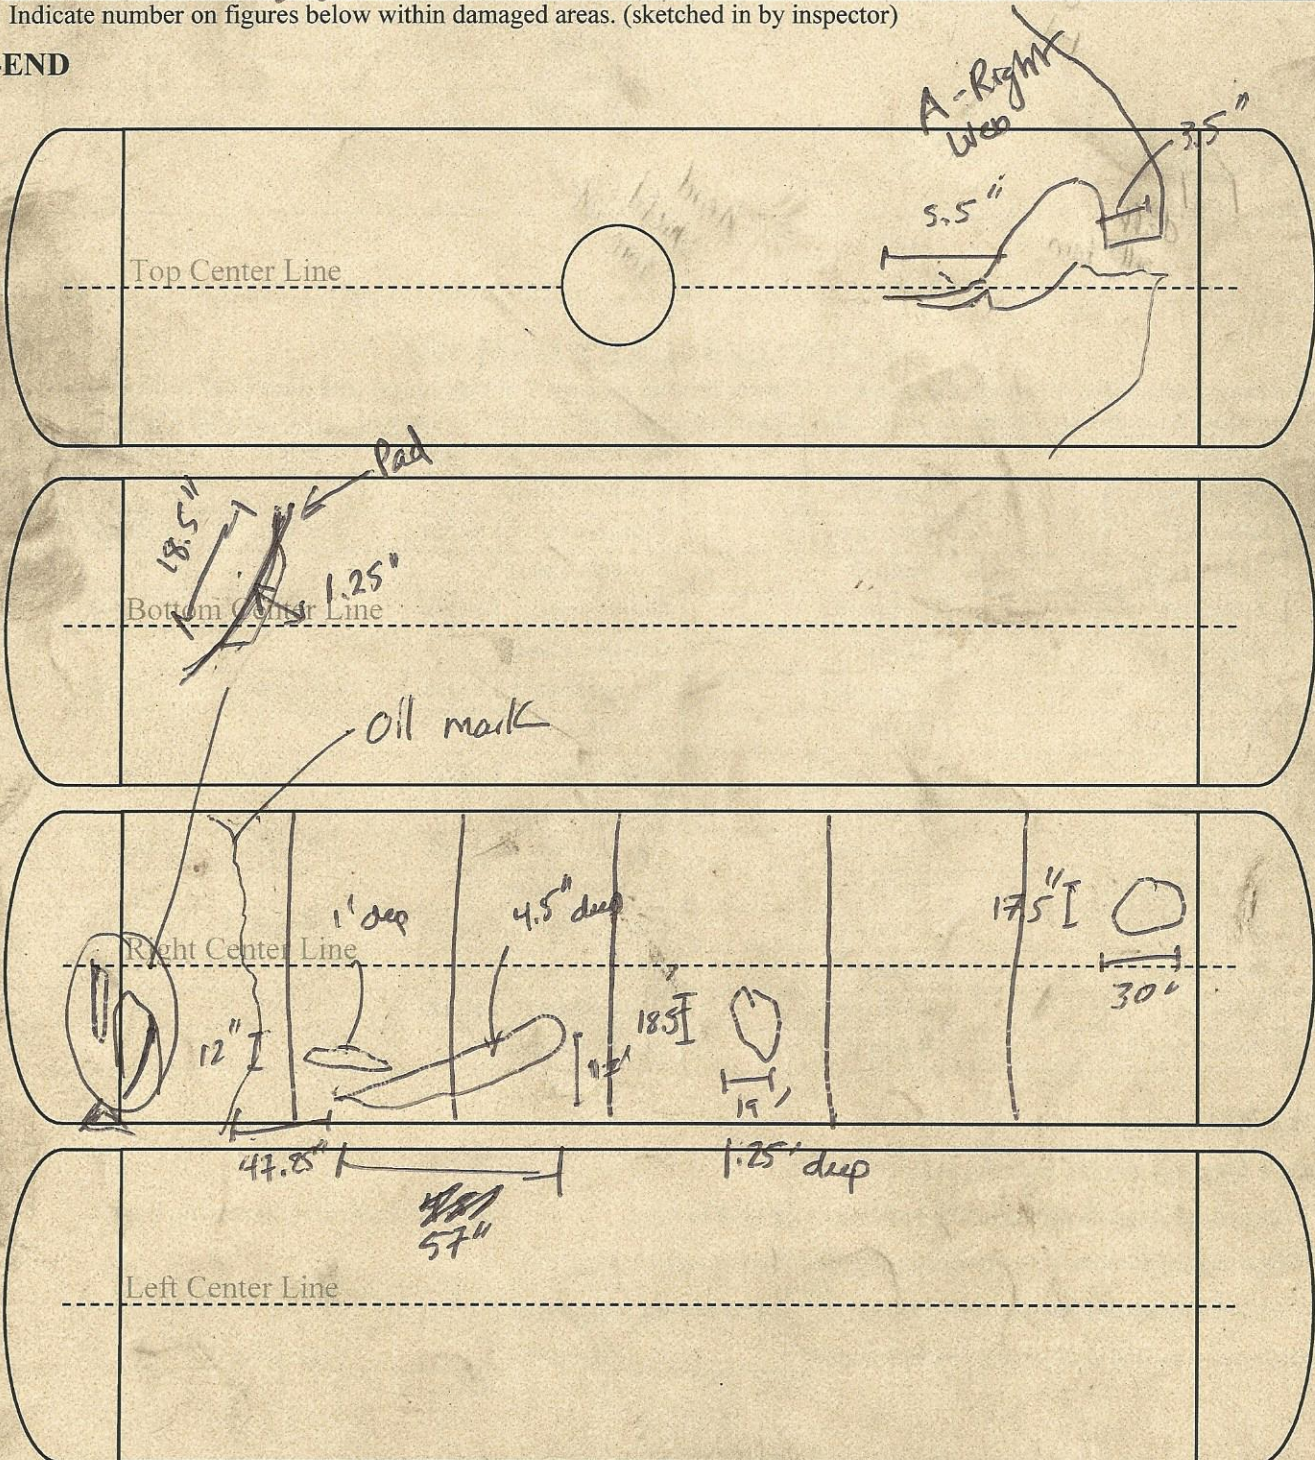 Indicate number on figures below within damaged areas. (sketched in by inspector)
-END
A-Right
Web
3.5"
5.5"
Top Center Line
Pad
18.5"
1.25"
Bottom Center Line
Oil mark
1' deep
4.5" deep
17.5"
Right Center Line
30"
18.5
12"
19"
47.25"
1.25' deep
57"
Left Center Line